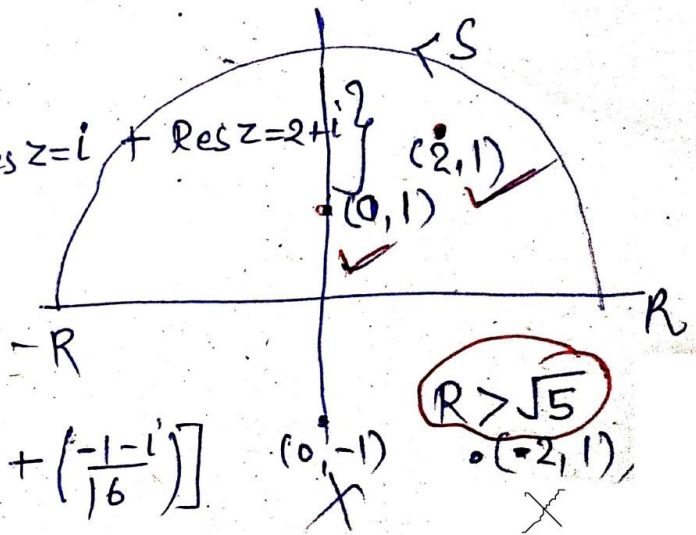 S
es z=i + Res z=2+i}
(2,1)
(0,1)
-R
R
R > √5
+ (-1-i/16)]
(0,-1)
.(-2,1),